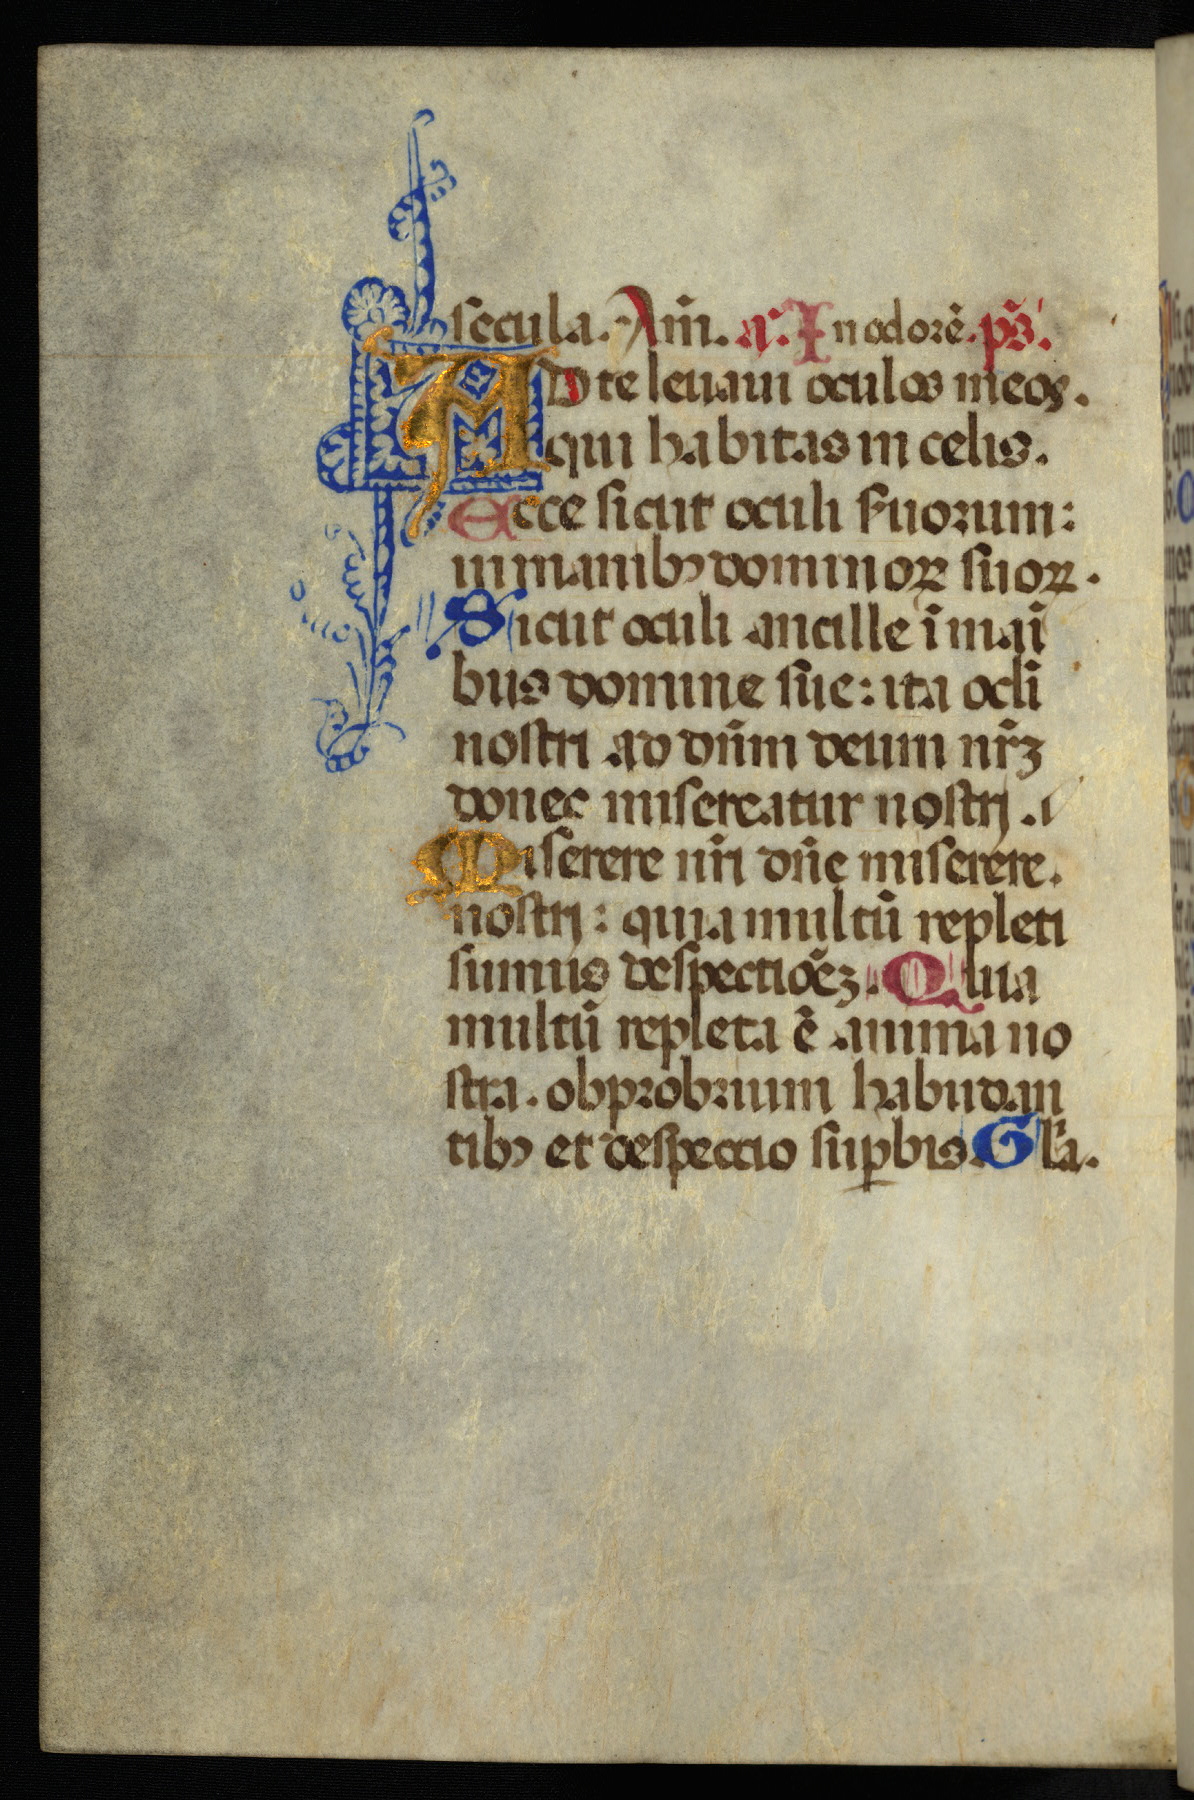 secula. Am̃. a᷑. In odorẽ. ps̃.
AD te leuaui oculos meos.
qui habitas in celis.
Ecce sicut oculi s̃uorum:
in manibꝯ dominoꝝ suoꝝ.
Sicut oculi ancille ĩ mãi
bus domine sue: ita ocl̃i
nostri ad dñm deum nr̃ꝫ
donec misereatur nostri.
Miserere nr̃i dñe miserere.
nostri: quia multũ repleti
sumus despectiõeꝫ. Quia
multũ repleta ẽ anima no
stra. obprobrium habũdan
tibꝯ et despectio suꝑbis. Gl̃a.